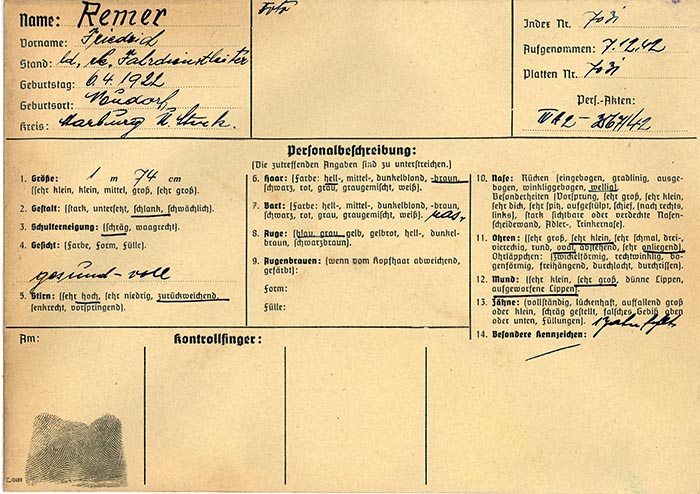 Name: Remer
Vorname: Friedrich
Stand: ld. Fahrdienstleiter
Geburtstag: 6.4.1922
Geburtsort: Neudorf
Kreis: Marburg
Index Nr. 7031
Aufgenommen: 7.12.42
Platten Nr. 7031
Pers.-Akten:
Personalbeschreibung:
(Die zutreffenden Angaben sind zu unterstreichen.)
1. Größe: 1 m 74 cm
(sehr klein, klein, mittel, groß, sehr groß).
2. Gestalt: (stark, untersetzt, schlank, schwächlich).
3. Schulterneigung: (schräg, waagrecht).
4. Gesicht: (Farbe, Form, Fülle).
gesund-voll
5. Stirn: (sehr hoch, sehr niedrig, zurückweichend,
senkrecht, vorspringend).
6. Haar: (Farbe: hell-, mittel-, dunkelblond, -braun,
schwarz, rot, grau, graugemischt, weiß).
7. Bart: (Farbe: hell-, mittel-, dunkelblond, -braun,
schwarz, rot, grau, graugemischt, weiß). ras.
8. Auge: (blau, grau, gelb, gelbrot, hell-, dunkel-
braun, schwarzbraun).
9. Augenbrauen: (wenn vom Kopfhaar abweichend,
gefärbt):
Form:
Fülle:
10. Nase: Rücken (eingebogen, gradlinig, ausge-
bogen, winkliggebogen, wellig).
Besonderheiten (Vorsprung, sehr groß, sehr klein,
sehr dick, sehr spitz, aufgestülpt, schief, [nach rechts,
links], stark sichtbare oder verdeckte Nasen-
scheidewand, Adler-, Trinkernase).
11. Ohren: (sehr groß, sehr klein, sehr schmal, drei-,
viereckig, rund, oval, abstehend, sehr anliegend).
Ohrläppchen: (zwickelförmig, rechtwinklig, bo-
genförmig, freihängend, durchlocht, durchrissen).
12. Mund: (sehr klein, sehr groß, dünne Lippen,
aufgeworfene Lippen).
13. Zähne: (vollständig, lückenhaft, auffallend groß
oder klein, schräg gestellt, falsches Gebiß oben
oder unten, Füllungen).
14. Besondere Kennzeichen:
Am:
Kontrollfinger: